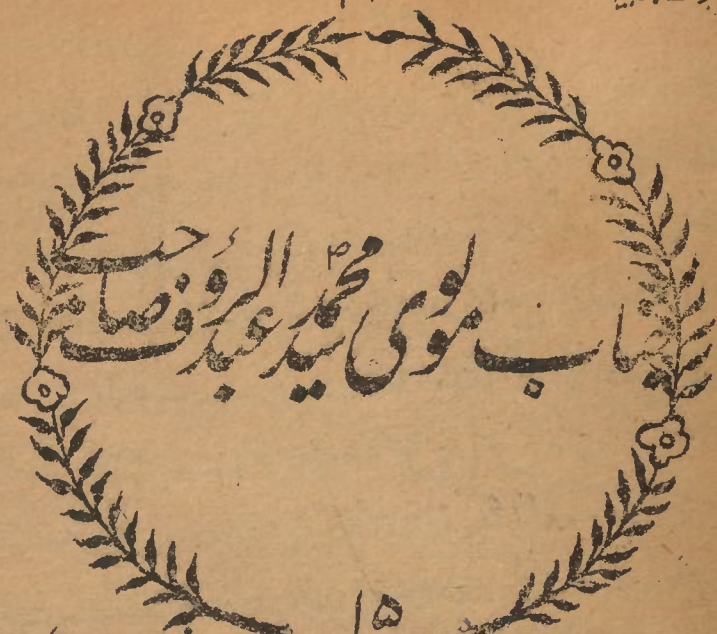 جناب مولوی محمد سید عبدالرؤف صاحب
۱۵